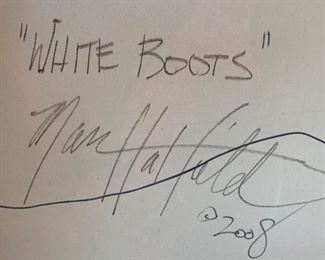 "WHITE BOOTS"
Marc Hatfield
©2008